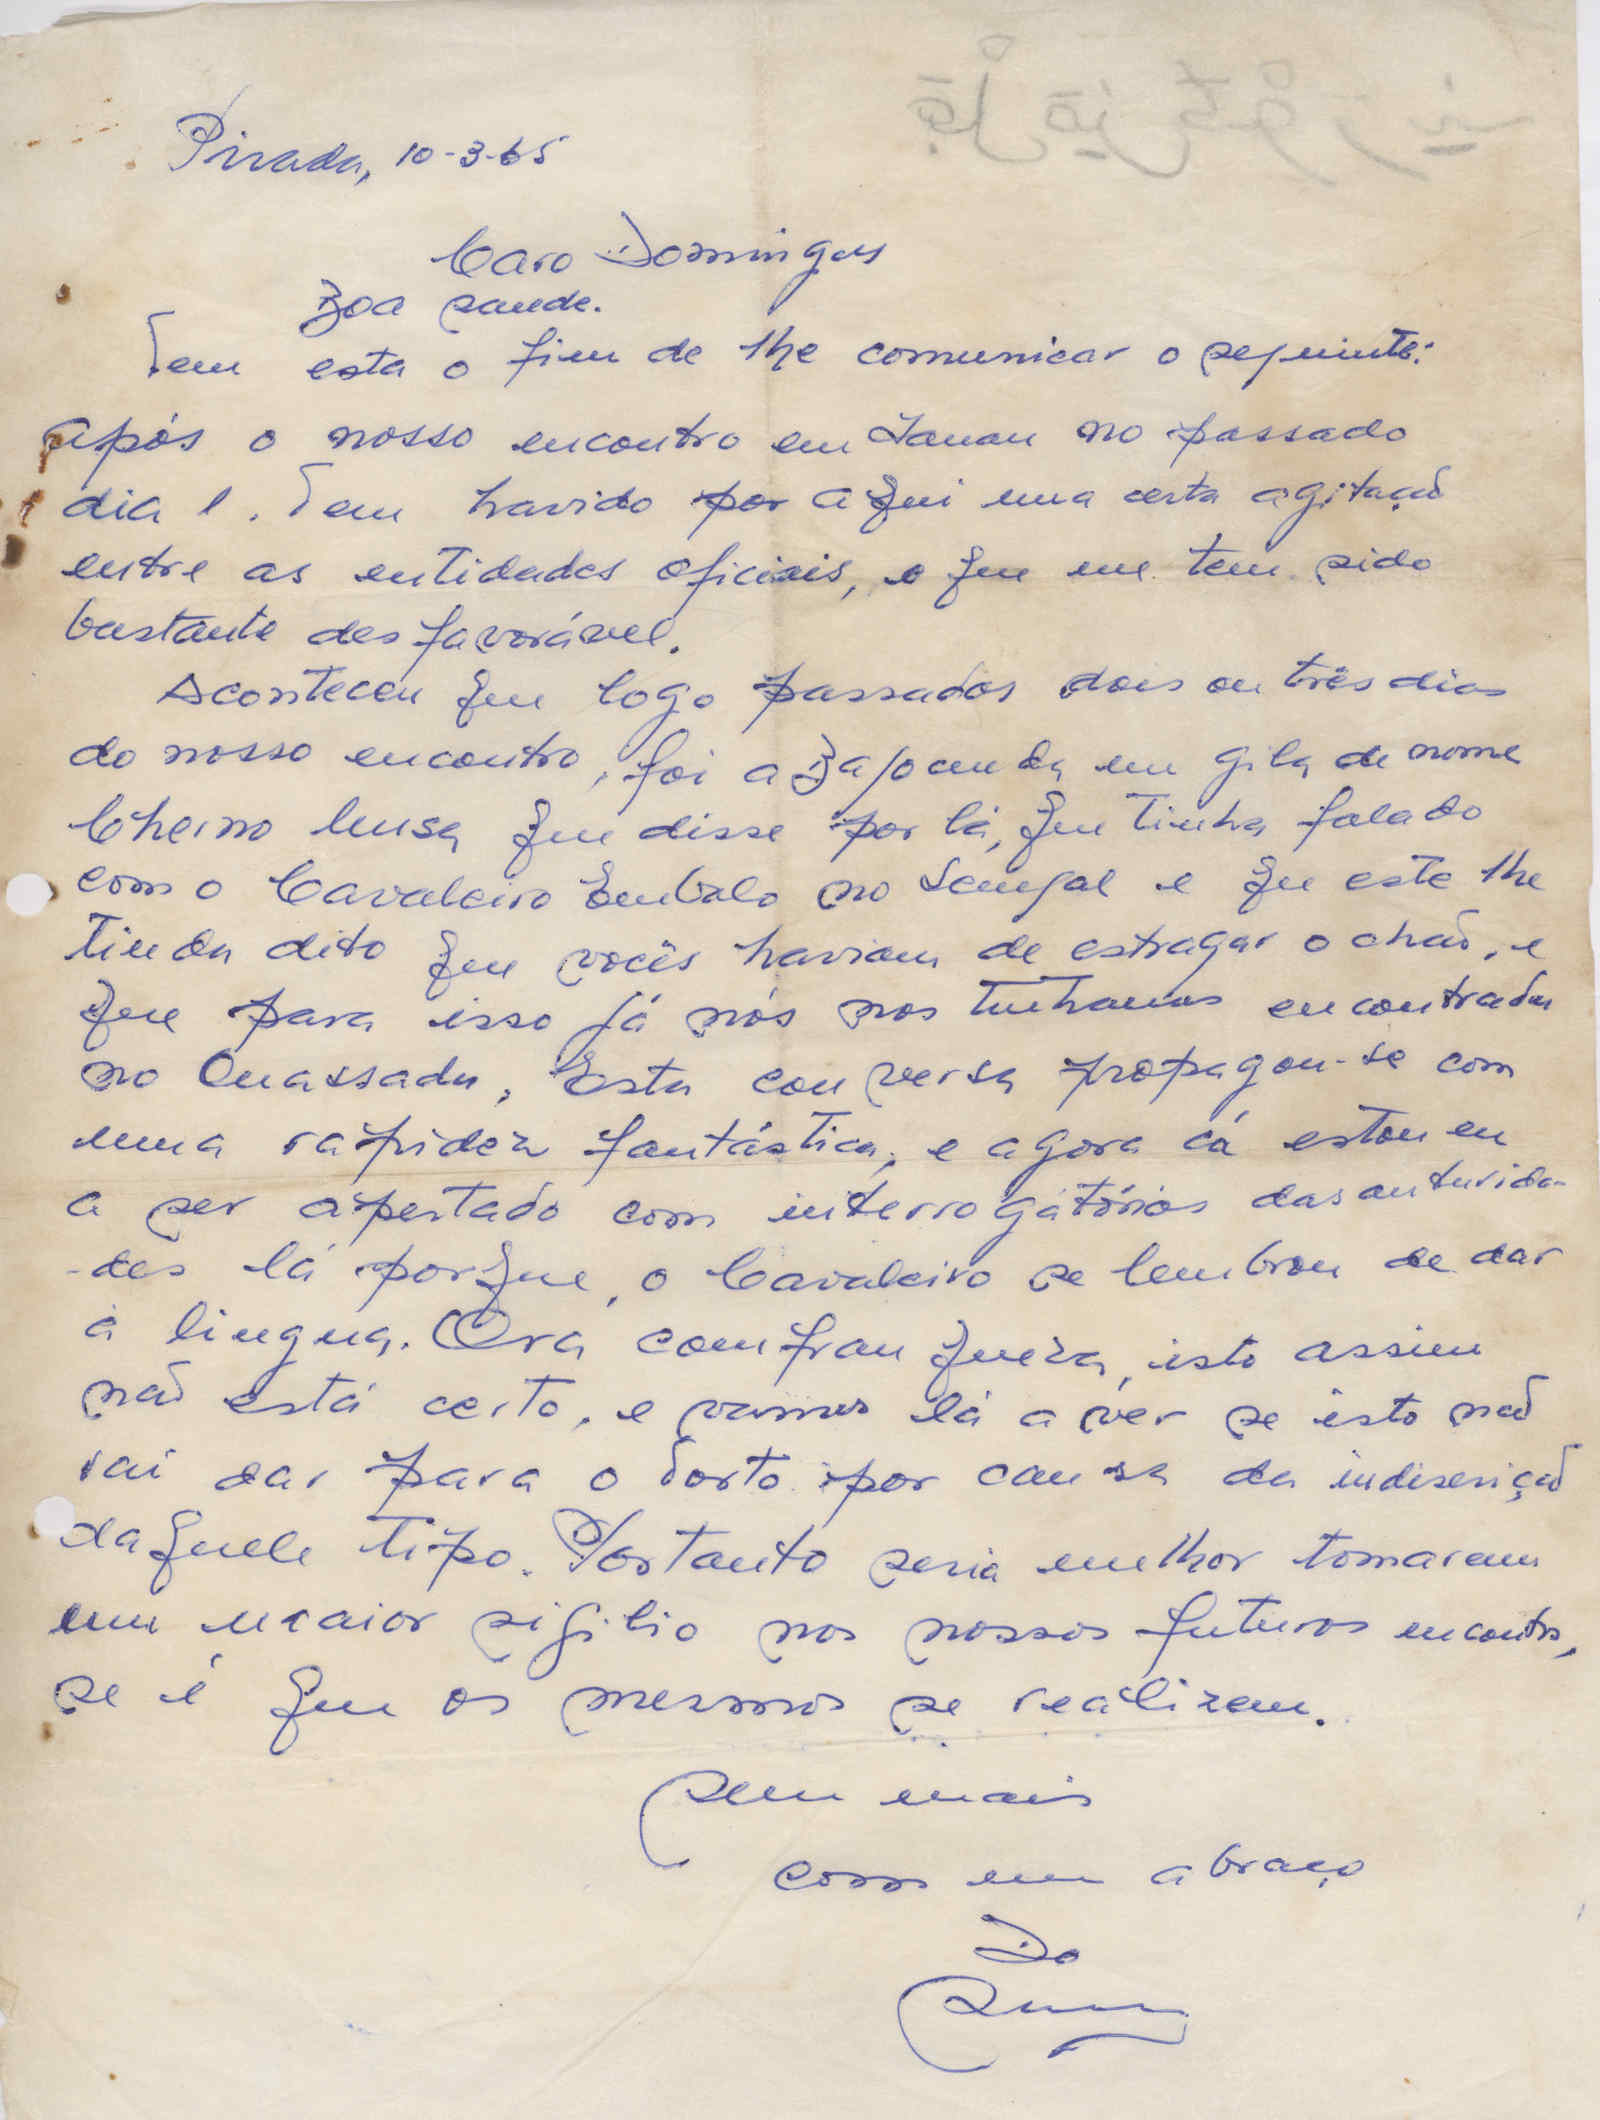 Pirada, 10-3-65
Caro Domingos
Boa saude.
Tem esta o fim de lhe comunicar o seguinte:
após o nosso encontro em Tanau no passado
dia 1. Tem havido por aqui uma certa agitação
entre as entidades oficiais, o que me tem sido
bastante desfavorável.
Aconteceu que logo passados dois ou três dias
do nosso encontro, foi a Bajocunda um gila de nome
Cherno Musa que disse por lá, que tinha falado
com o Cavaleiro Embalo no Senegal e que este lhe
tinda dito que vocês haviam de estragar o chão, e
que para isso já nós nos tinhamos encontrado
no Ouassadu, Esta conversa propagou-se com
uma rapidez fantástica, e agora cá estou eu
a ser apertado com interrogatórios das autorida-
-des lá porque, o Cavaleiro se lembrou de dar
á lingua. Ora com franqueza, isto assim
não está certo, e vamos lá a vêr se isto não
vai dar para o torto por causa da indiscrição
daquele tipo. Portanto seria melhor tomarem
um maior sigilio nos nossos futuros encontros,
se é que os mesmos se realizem.
Sem mais
com um abraço
Do